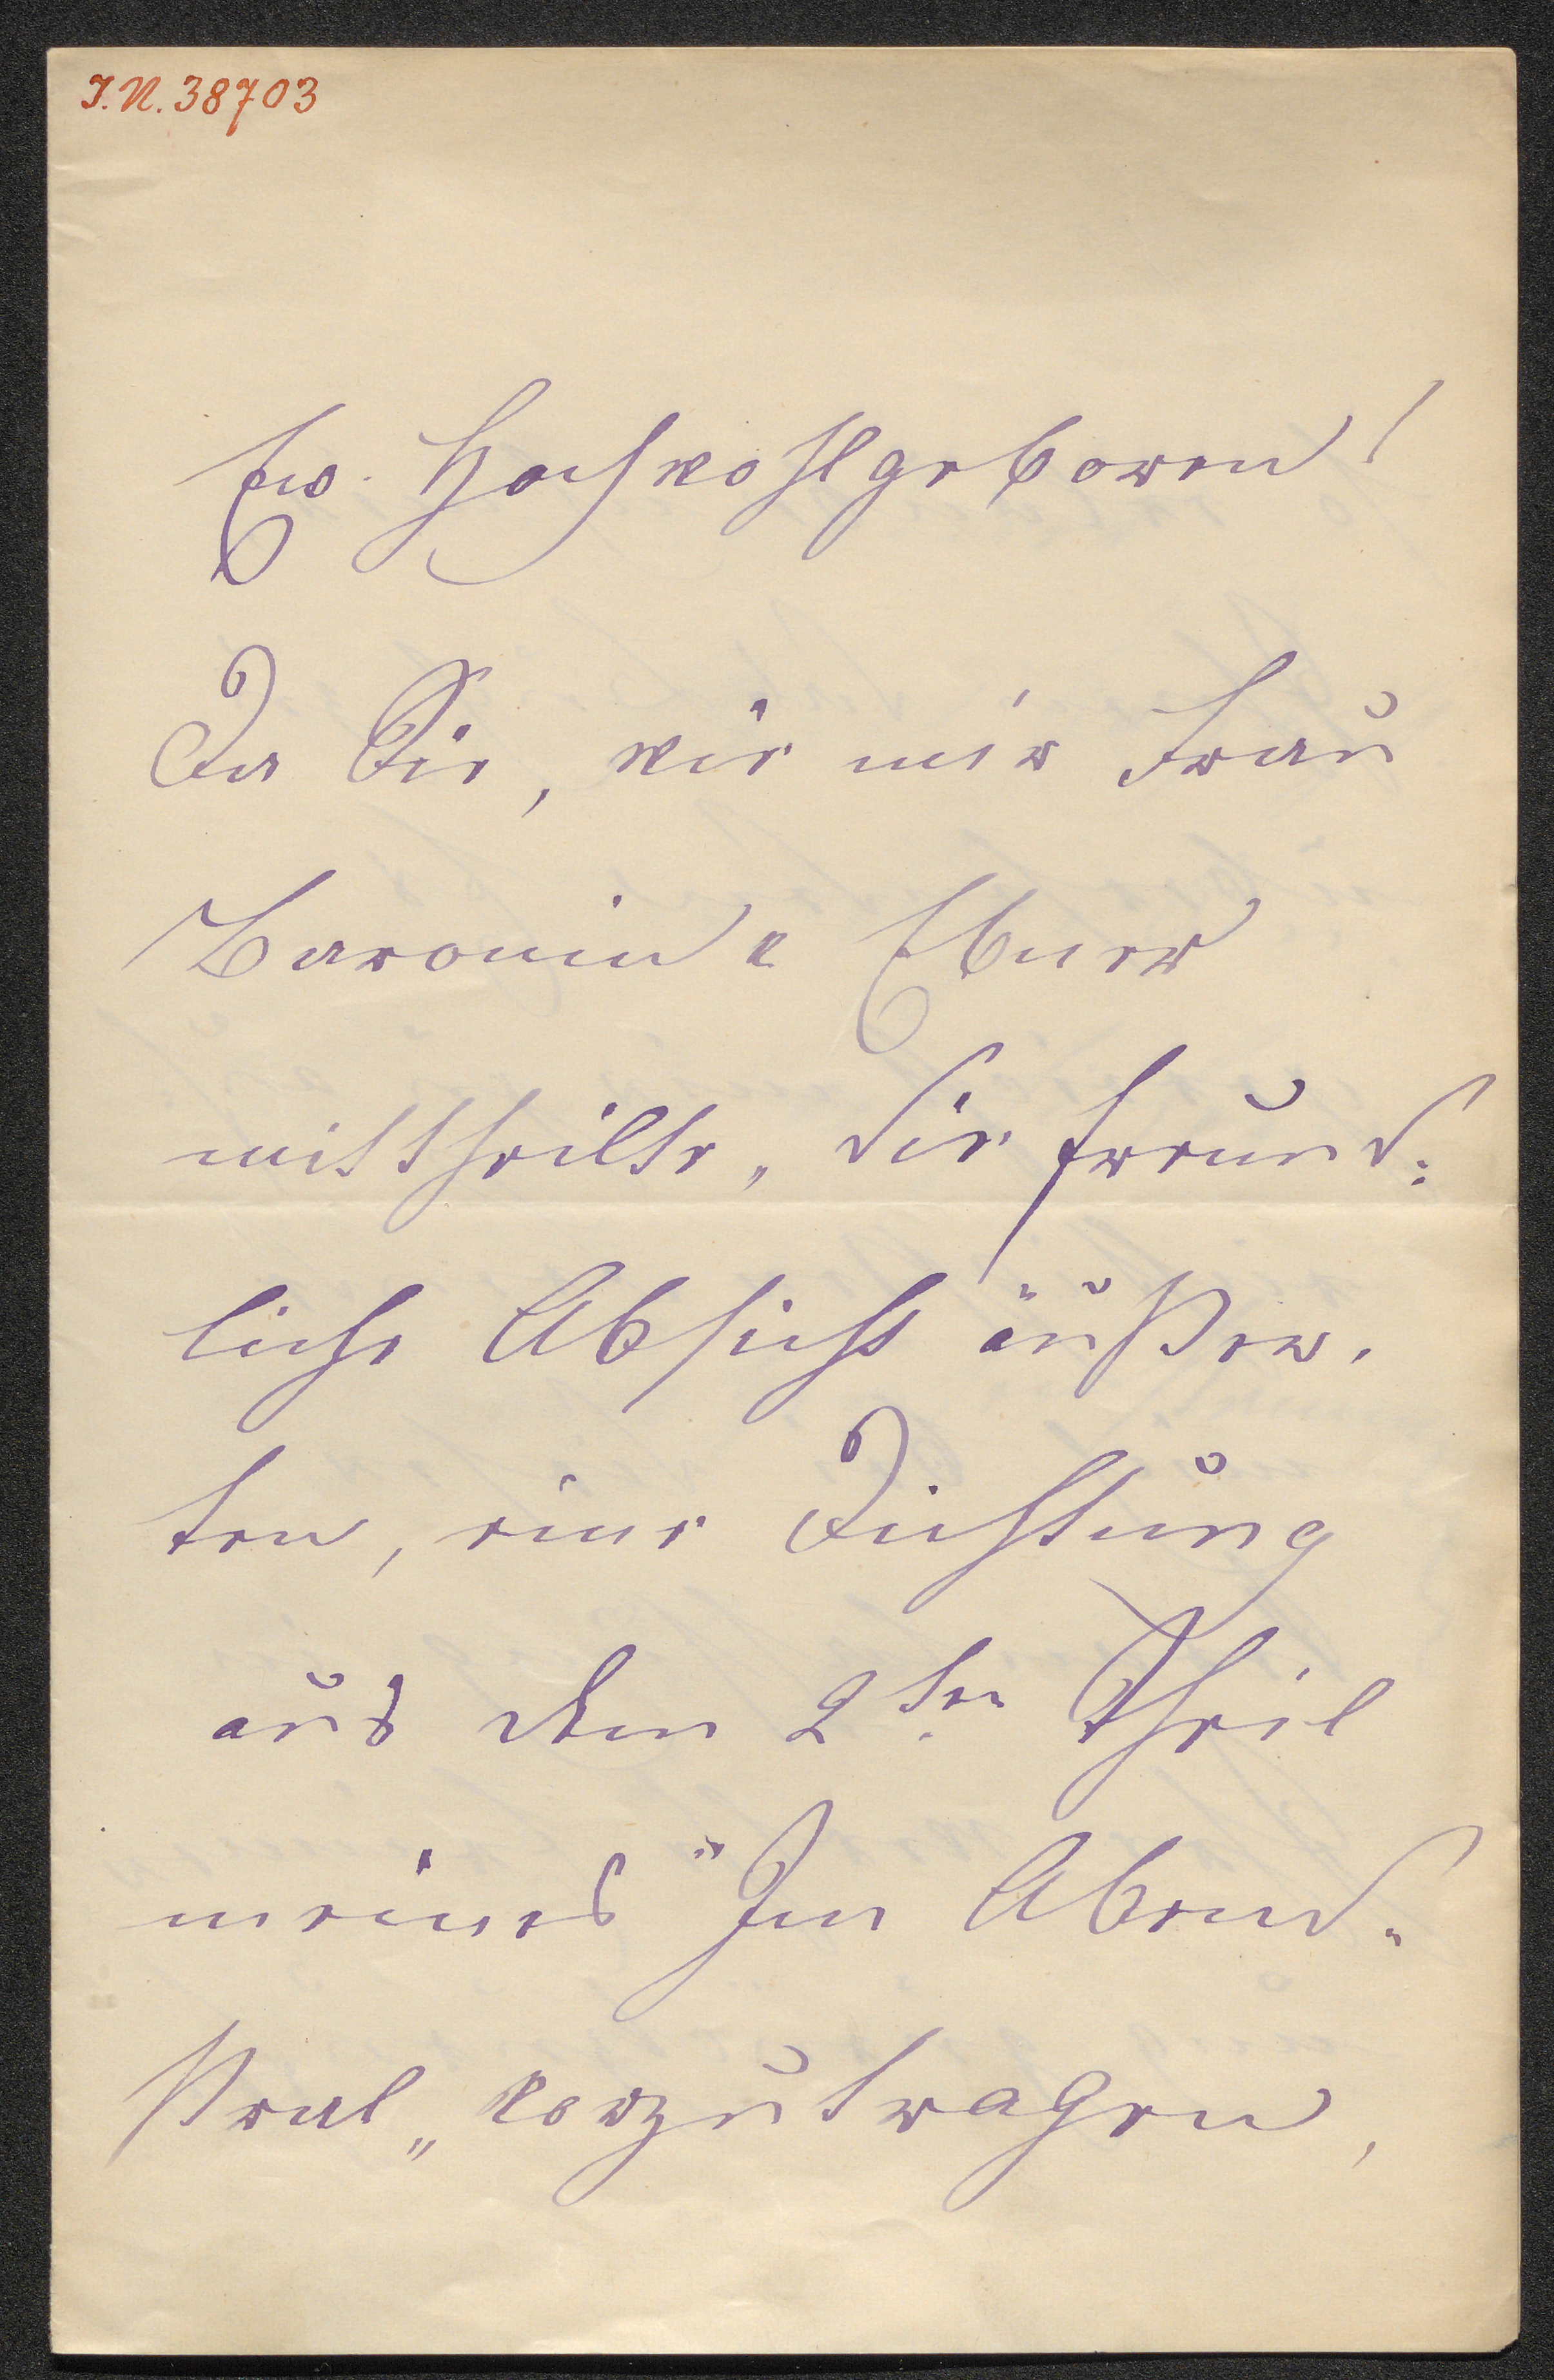 I.N. 38703
Ew. Hochwohlgeboren!
Da Sie, wie mir Frau
Baronin v Ebner
mittheilte, die freund:
liche Absicht äußer-
ten, eine Dichtung
aus dem 2ten Theil
meines "Im Abend-
stral„ vorzutragen,